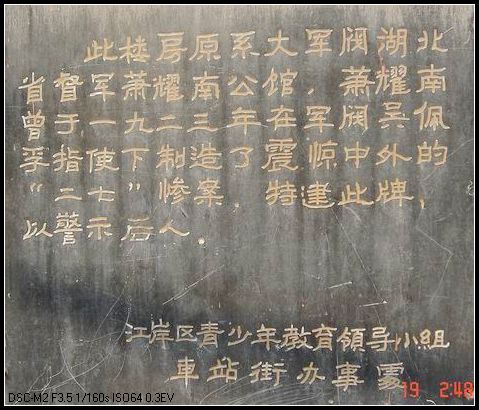 此楼房原系大军阀湖北
省督军萧耀南公馆，萧耀南
曾于一九二三年在军阀吴佩
孚指使下制造了震惊中外的
“二七”惨案．特建此牌，
以警示后人．
江岸区青少年教育領导小組
車站街办事處
19 2:48
DSC-M2 F3.5 1/160s ISO64 0.3EV